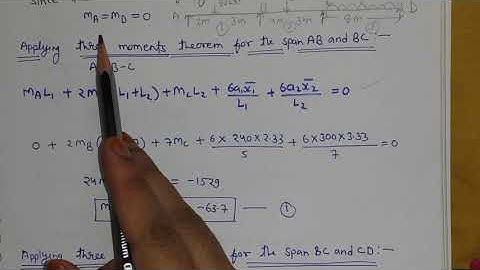 MA = MD = 0
A 2m 3m 3m 8m D
Applying three moments theorem for the span AB and BC :-
B-C
MAL1 + 2M L1+L2) + MCL2 + 6a1x̄1/L1 + 6a2x̄2/L2 = 0
0 + 2MB ( ) + 7MC + 6×240×2.33/5 + 6×300×3.33/7 = 0
= -1529
-63.7 — ①
Applying three for the span BC and CD :-